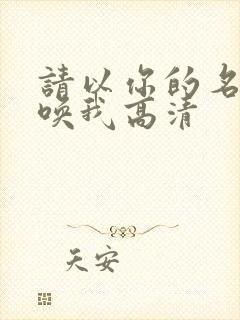 請以你的名
喚我高清
天安